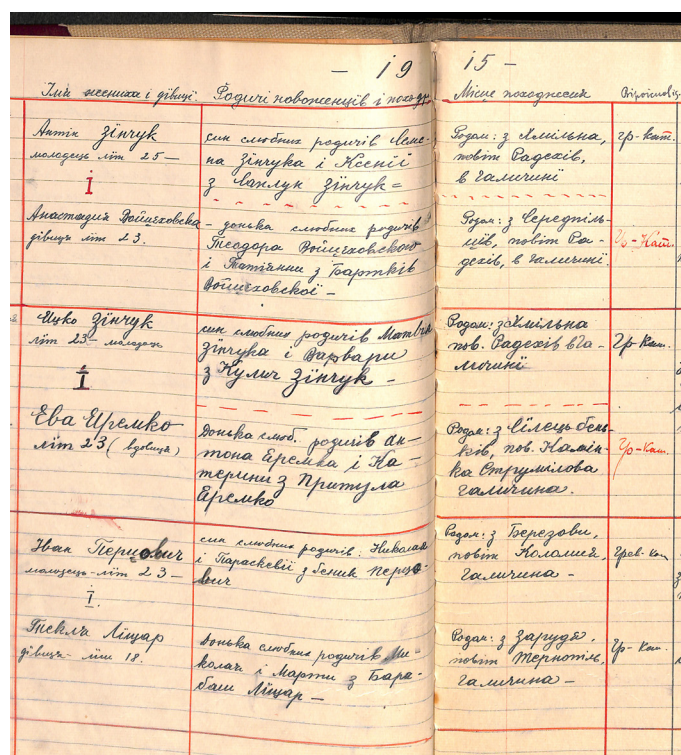 — 19 15 —
Імя жениха і дівиці. Родичі новоженців і походж. Місце походження Віроісповід.
Антін Зінчук
молодець літ 25 —
і
син слюбних родичів Семе-
на Зінчука і Ксенії
з Саплук Зінчук =
Родом: з Хмільна,
повіт Радехів,
в Галичині
гр-кат.
Анастазия Войцеховска
дівиця літ 23.
— донька слюбних родичів
Теодора Войцеховского
і Татіянни з Бартків
Войцеховскої —
Родом: з Середпіль-
ців, повіт Ра-
дехів, в Галичині.
Гр-Кат.
Ицко Зінчук
літ 23 — молодець
і
син слюбних родичів Матвія
Зінчука і Варвари
з Кулич Зінчук —
Родом: з Хмільна
пов. Радехів в Га-
личині
Гр-Кат.
Ева Яремко
літ 23 (вдовиця)
Донька слюб. родичів Ан-
тона Яремка і Ка-
терини з Притула
Яремко
Родом: з Сілець бень-
ків, пов. Камін-
ка Струмілова
Галичина.
Гр-Кат.
Іван Перцович
молодець — літ 23 —
і.
син слюбних родичів: Николая
і Параскевії з Беник
Родом: з Березови,
повіт Коломия,
Галичина —
Грек-Кат
Текля Ліщар
дівиця — літ 18.
Донька слюбних родичів Ми-
колая і Марти з Бара-
баш Ліщар —
Родом: з Заруддя.
повіт Тернопіль,
Галичина —
Гр-Кат.